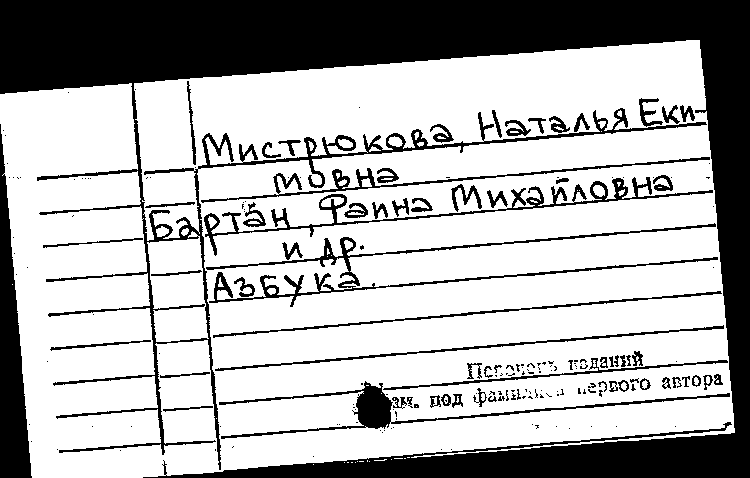 Мистрюкова, Наталья Еки-
мовна
Бартан, Фаина Михайловна
и др.
Азбука.
Перечень изданий
см. под фамилией первого автора